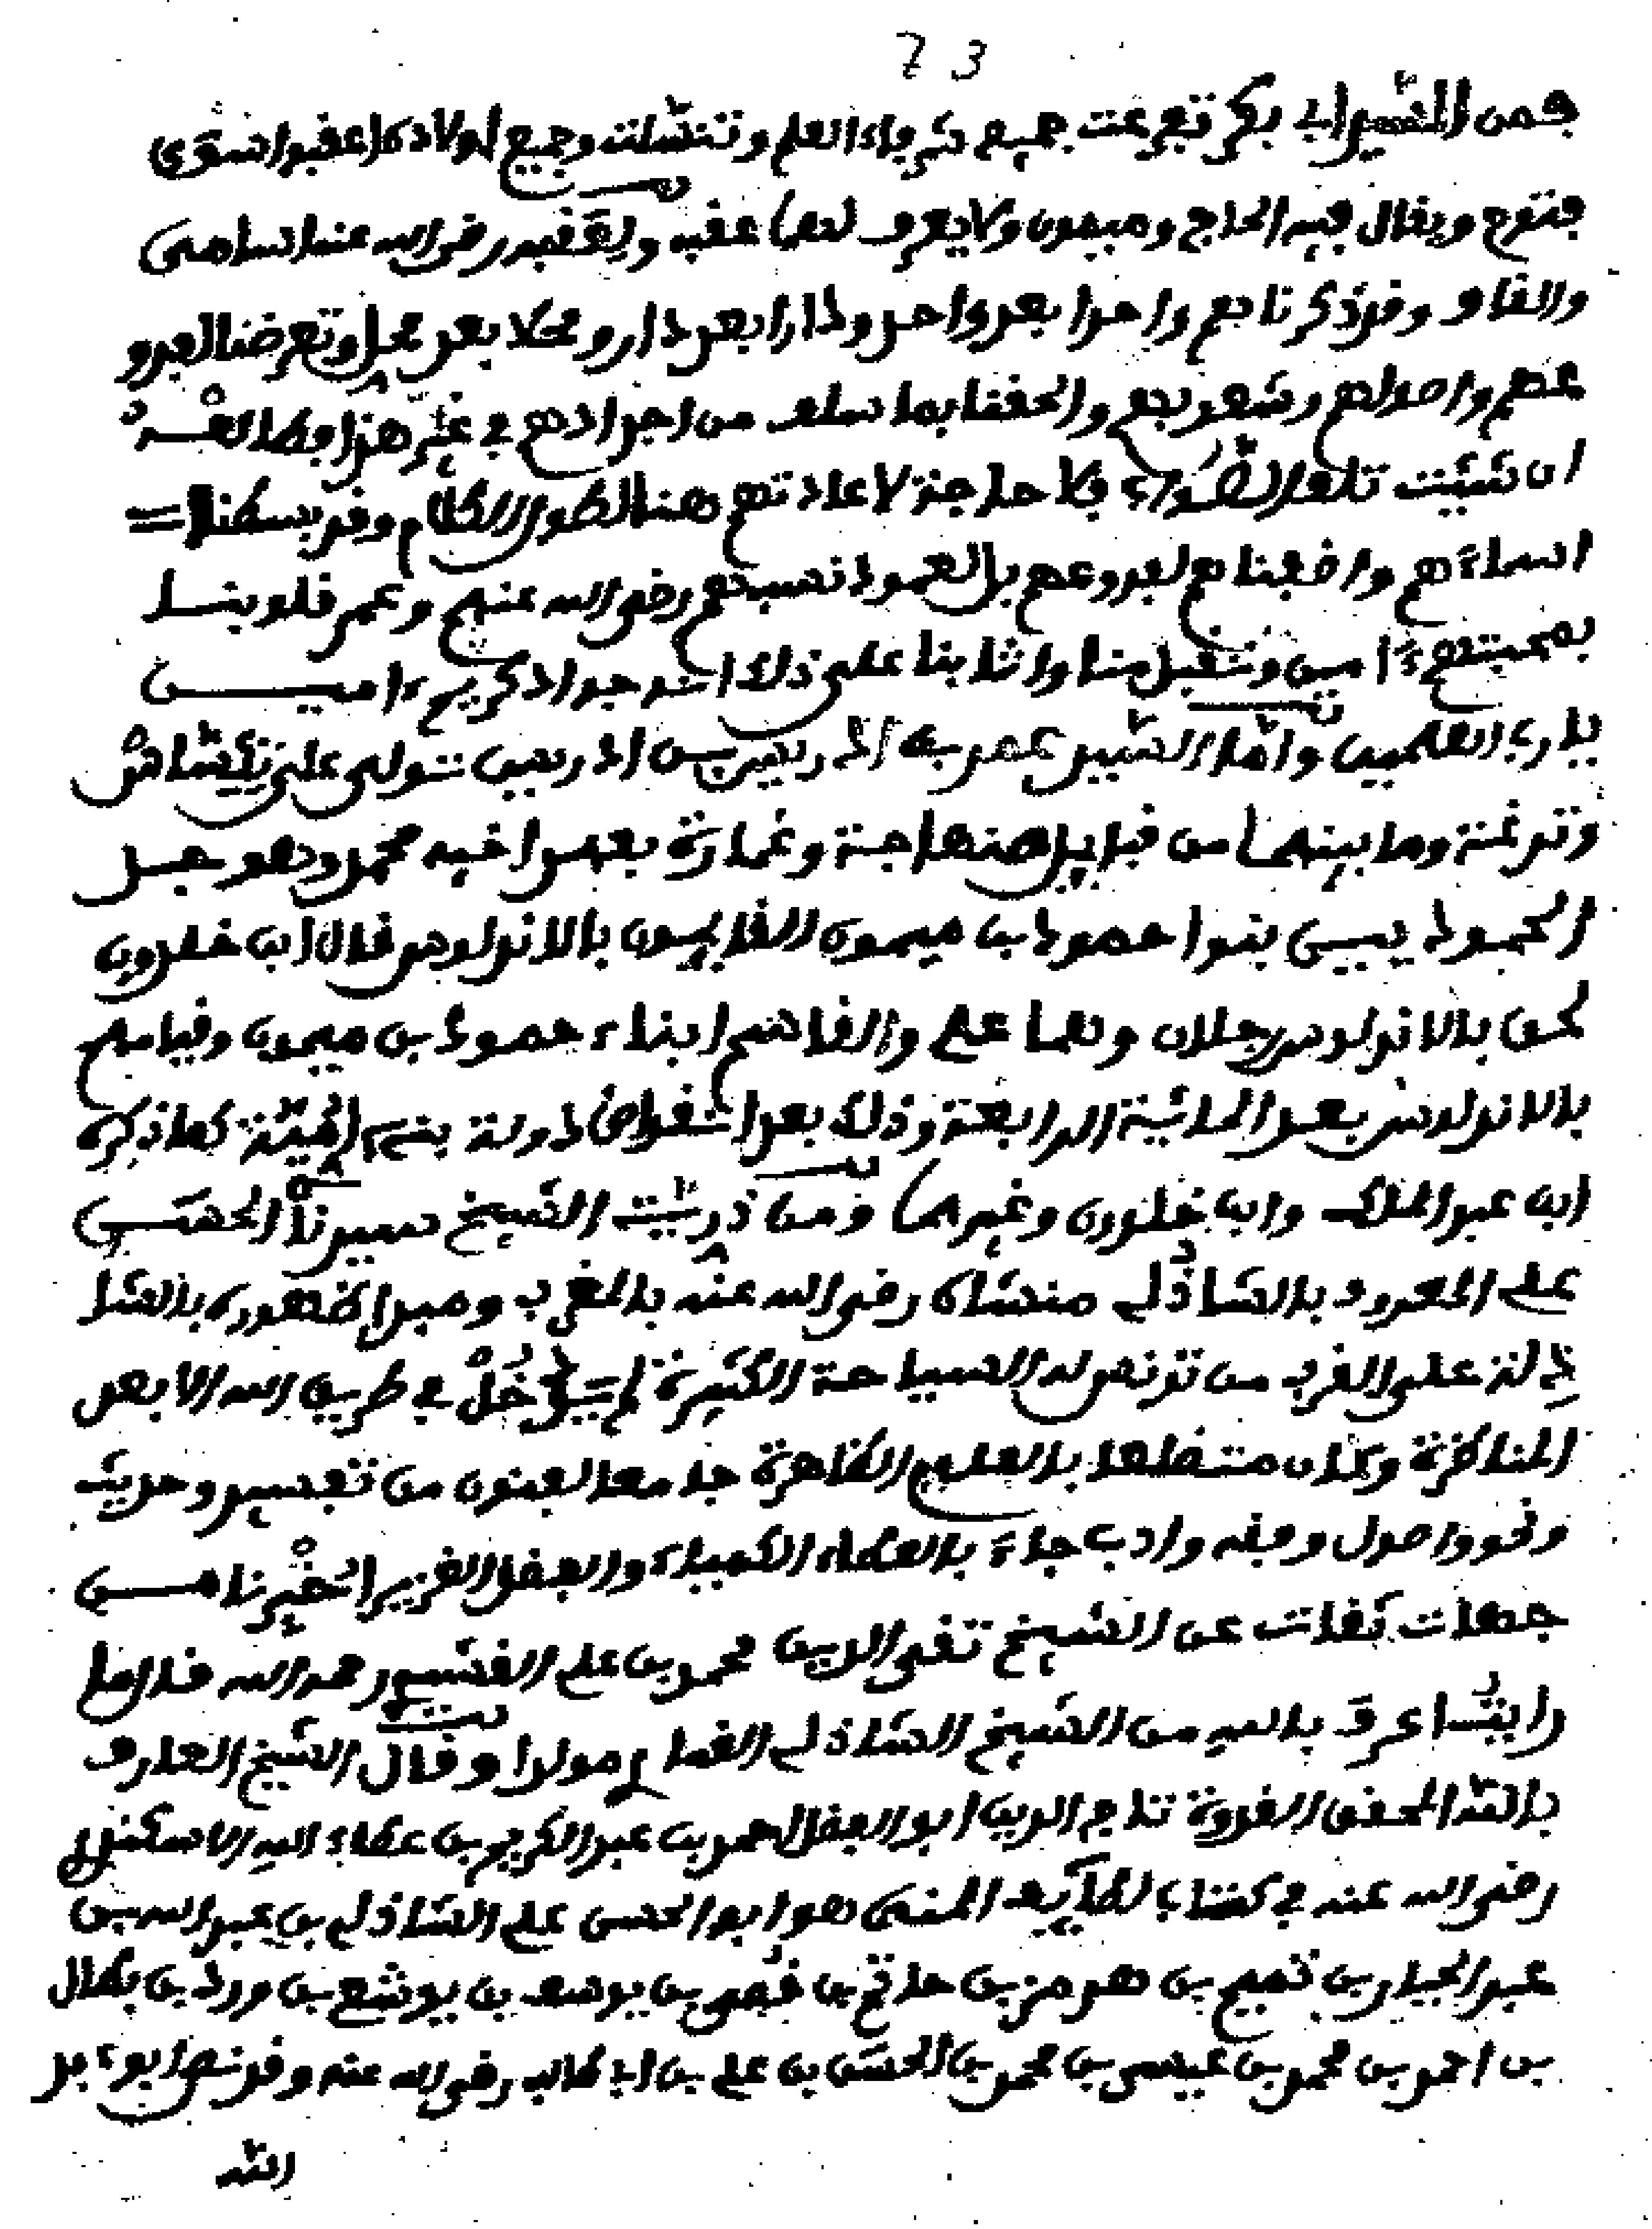 73
فمن السيد أبي بكر تفرعت جميع شرفاء العلم وتنسلت وجميع أولاده اعقبوا سوى
فتوح ويقال فيه الحاج وميمون ولا يعرف لهما عقب ولعقبه رضي الله عنه اسامي
والقاب وقد ذكرناهم واحدا بعد واحد ودارا بعد دار ومحلا بعد محل وتعرضنا لفروعهم
واصولهم وشعوبهم والحقنا بما سلف من اجدادهم في غير هذا
ان شئت فلا حاجة لاعادتهم هنا لطول الكلام وقد بسطنا
اسماءهم واضفناهم لفروعهم بل لعمود نسبهم رضي الله عنهم وعمر قلوبنا
بمحبتهم ءامين وتقبل منا واثابنا على ذلك انه جواد كريم ءاميـــن
يا رب العلمين واما السيد عمر بن ادريس بن ادريس تولى على تيكساس
وترغة وما بينهما من قبايل صنهاجة وغمارة بعهد اخيه محمد وهو جد
الحموديين بنوا حمود بن ميمون القايمون بالاندلس قال ابن خلدون
لحق بالاندلس رجلان وهما علي والقاسم ابناء حمود بن ميمون وقيامهم
بالاندلس بعد المائة الرابعة وذلك بعد انقراض دولة بني امية كما ذكره
ابن عبد الملك وابن خلدون وغيرهما ومن ذريت الشيخ سيدنا الحسن
علي المعروف بالشاذلي منشاه رضي الله عنه بالمغرب ومبدا ظهوره بالشا
ذلة على القرب من تونس له السياحة الكثيرة لم يدخل في طريق الله الا بعد
المناظرة وكان متضلعا بالعلوم الظاهرة جامعا لفنون من تفسير وحديث
ونحو واصول وفقه وادب جاء بالعلماء الكبراء والفضل الغزير اخبرنا مـــن
جهات ثقات عن الشيخ تقي الدين محمد بن علي القشيري رحمه الله قال ما
رايت اعرف بالله من الشيخ الشاذلي الغماري مولدا وقال الشيخ العارف
بالله المحقق القدوة تاج الدين ابو الفضل احمد بن عبد الكريم بن عطاء الله الاسكندري
رضي الله عنه في كتاب لطايف المنن هو ابو الحسن علي الشاذلي بن عبد الله بن
عبد الجبار بن تميم بن هرمز بن حاتم بن قصي بن يوسف بن يوشع بن ورد بن بطال
بن احمد بن محمد بن عيسى بن محمد بن الحسن بن علي بن ابي طالب رضي الله عنه وقد نص ابو عبد
الله